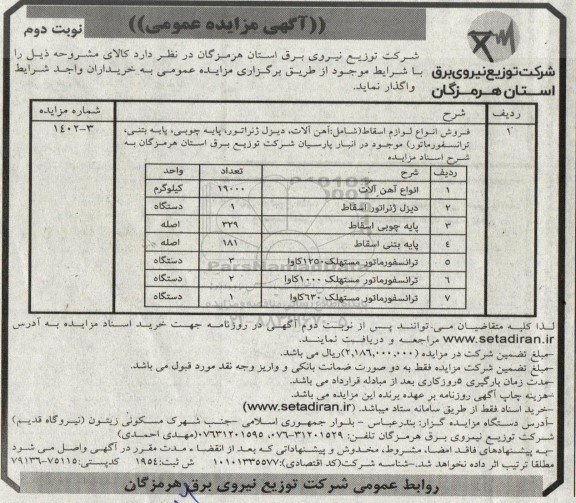 ((آگهی مزایده عمومی))
نوبت دوم
شرکت توزیع نیروی برق
استان هرمزگان
شرکت توزیع نیروی برق استان هرمزگان در نظر دارد کالای مشروحه ذیل را
با شرایط موجود از طریق برگزاری مزایده عمومی به خریداران واجد شرایط
واگذار نماید.
ردیف شرح شماره مزایده
۱ فروش انواع لوازم اسقاط(شامل:آهن آلات، دیزل ژنراتور، پایه چوبی، پایه بتنی، ۳-۱۴۰۲
ترانسفورماتور) موجود در انبار پارسیان شرکت توزیع برق استان هرمزگان به
شرح اسناد مزایده
ردیف شرح تعداد واحد
۱ انواع آهن آلات ۱۹۰۰۰ کیلوگرم
۲ دیزل ژنراتور اسقاط ۱ دستگاه
۳ پایه چوبی اسقاط ۳۲۹ اصله
۴ پایه بتنی اسقاط ۱۸۱ اصله
۵ ترانسفورماتور مستهلک ۱۲۵۰کاوا ۳ دستگاه
۶ ترانسفورماتور مستهلک ۱۰۰۰کاوا ۲ دستگاه
۷ ترانسفورماتور مستهلک ۶۳۰کاوا ۱ دستگاه
لذا کلیه متقاضیان می توانند پس از نوبت دوم آگهی در روزنامه جهت خرید اسناد مزایده به آدرس
www.setadiran.ir مراجعه و دریافت نمایند.
-مبلغ تضمین شرکت در مزایده (۲,۱۸۶,۰۰۰,۰۰۰)ریال می باشد.
-مبلغ تضمین شرکت مزایده فقط به دو صورت ضمانت بانکی و واریز وجه نقد مورد قبول می باشد.
-مدت زمان بارگیری ۵روزکاری بعد از مبادله قرارداد می باشد.
-هزینه چاپ آگهی روزنامه بر عهده برنده این مزایده می باشد.
-خرید اسناد فقط از طریق سامانه ستاد میباشد. (www.setadiran.ir)
-آدرس دستگاه مزایده گزار: بندرعباس - بلوار جمهوری اسلامی -جنب شهرک مسکونی زیتون (نیروگاه قدیم)
شرکت توزیع نیروی برق هرمزگان تلفن: ۳۱۲۰۱۵۲۹-۰۷۶ ۰۷۶۳۱۲۰۱۵۹۵(مهدی احمدی)
-به پیشنهادهای فاقد امضاء، مشروط، مخدوش و پیشنهاداتی که بعد از انقضاء مدت مقرر در آگهی واصل می شود
مطلقا ترتیب اثر داده نخواهد شد.-شناسه شرکت(کد اقتصادی): ۱۰۱۰۱۳۳۵۵۷۷ ش ثبت:۱۹۵۴ کدپستی:۷۵۱۱۵-۷۹۱۳۶
روابط عمومی شرکت توزیع نیروی برق هرمزگان